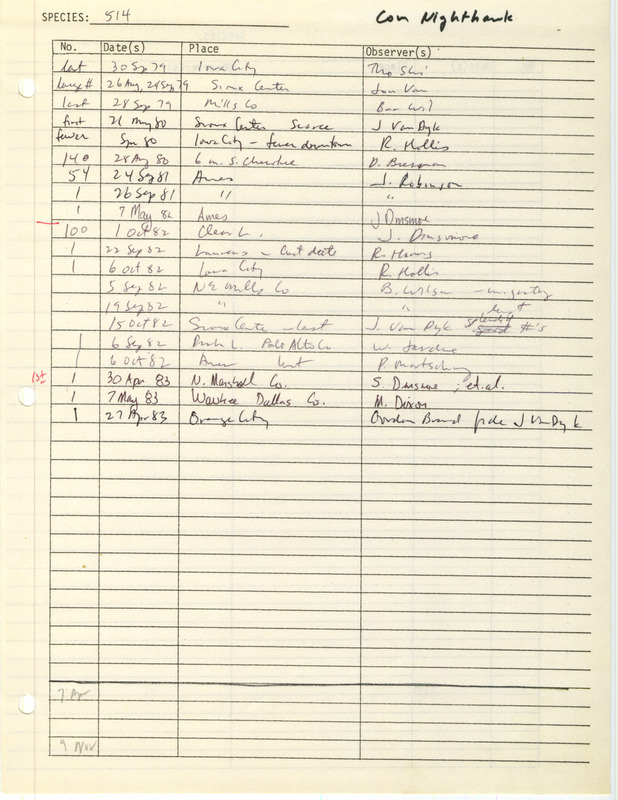 SPECIES: 514 Com Nighthawk
No. Date(s) Place Observer(s)
last 30 Sep 79 Iowa City
large # 26 Aug, 24 Sep 79 Sioux Center Jon Van
last 28 Sep 79 Mills Co
first 21 May 80 Sioux Center Scarce J Van Dyk
fewer Spr 80 Iowa City - fewer downtown R. Hollis
140 28 Aug 80 6 m. S. Cherokee D. Bierman
54 24 Sep 81 Ames J. Robinson
1 26 Sep 81 " "
1 7 May 82 Ames J Dinsmore
100 1 Oct 82 Clear L. J. Dinsmore
1 22 Sep 82 Laurens - last date R. Harms
1 6 Oct 82 Iowa City R. Hollis
5 Sep 82 NE Mills Co B. Wilson - migrating
19 Sep 82 " " last
15 Oct 82 Sioux Center - last J. Van Dyk #'s
1 6 Sep 82 Rush L. Palo Alto Co
1 6 Oct 82 Ames last
1st 1 30 Apr 83 N. Marshall Co. S. Dinsmore; et.al.
1 7 May 83 Waukee Dallas Co. M. Dixon
1 27 Apr 83 Orange City Brand fide J Van Dyk
7 Apr
9 Nov